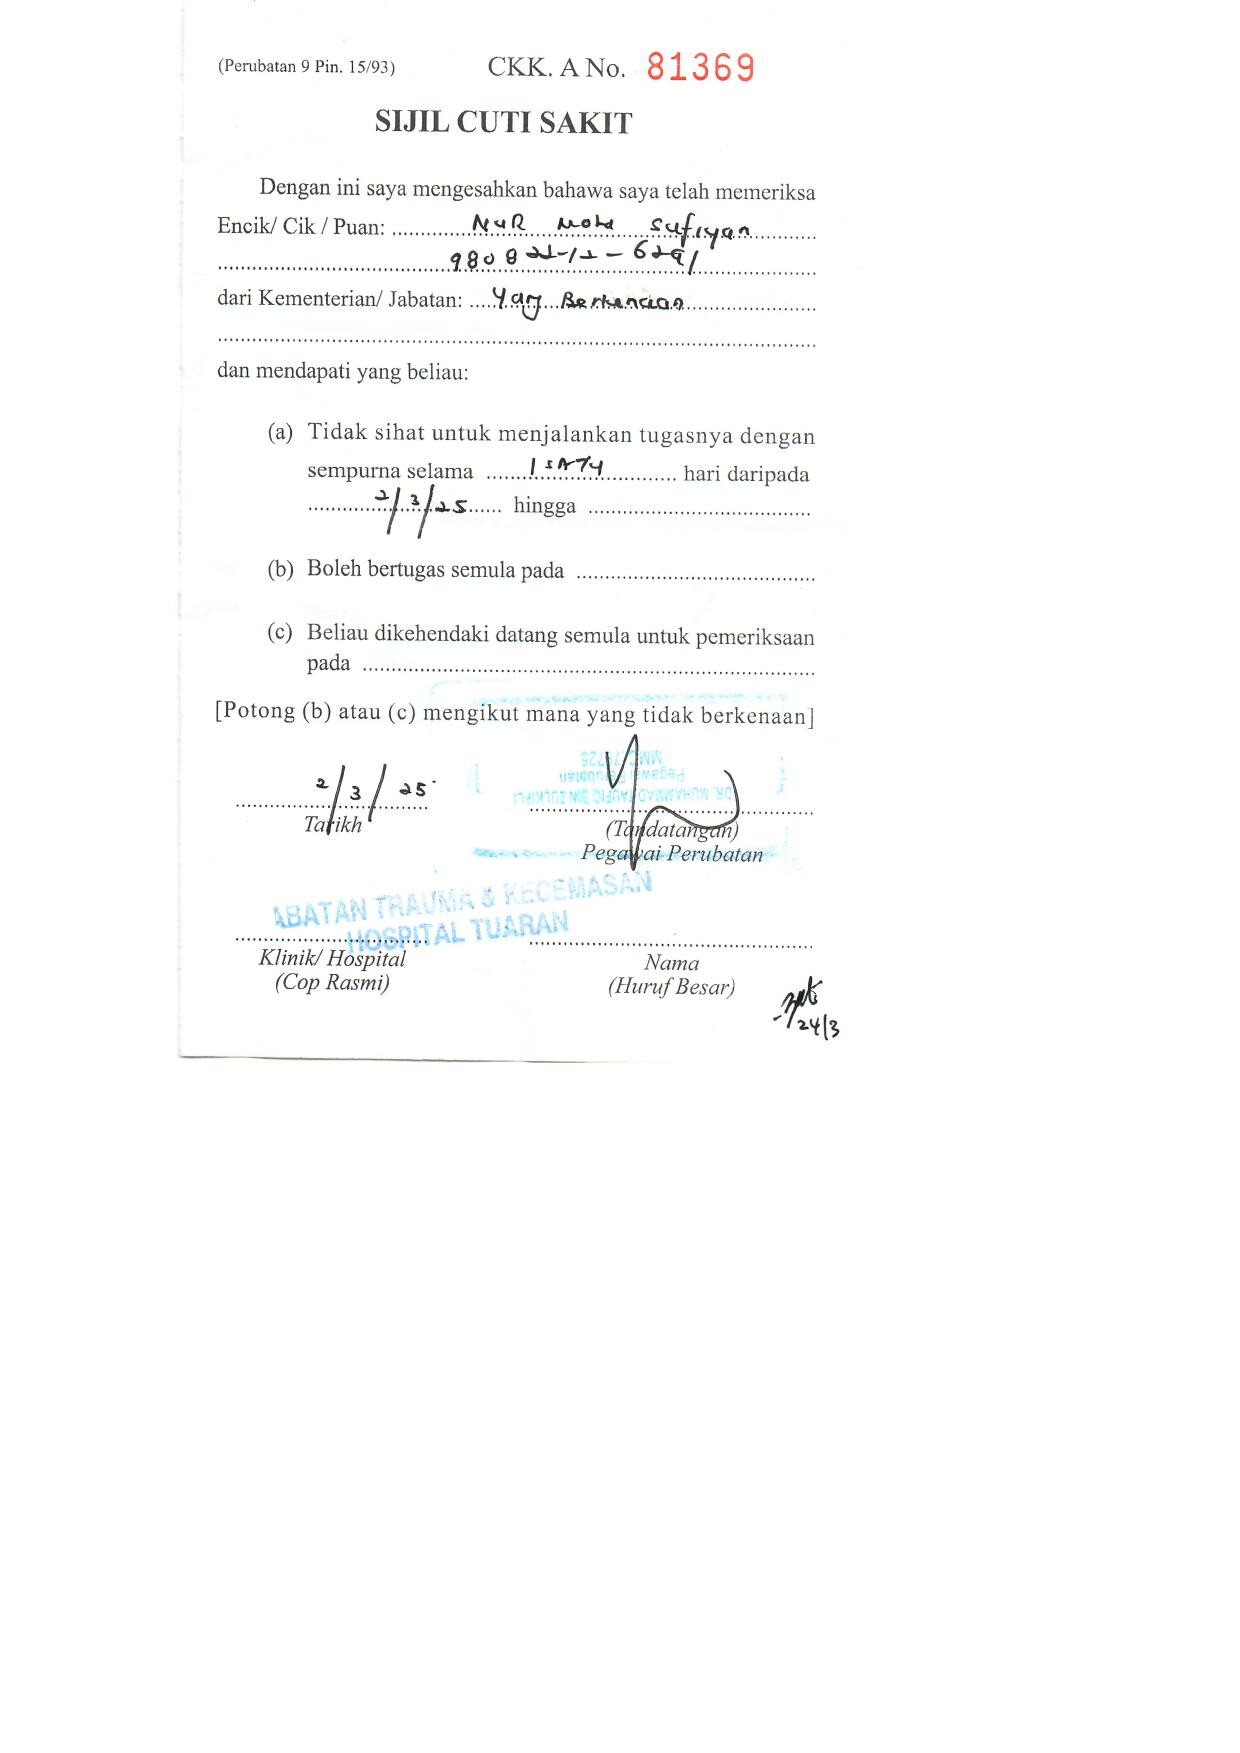 (Perubatan 9 Pin. 15/93) CKK. A No. 81369
SIJIL CUTI SAKIT
Dengan ini saya mengesahkan bahawa saya telah memeriksa
Encik/ Cik / Puan: NUR Mohd Sufiyan
980822-12-6291
dari Kementerian/ Jabatan: Yang Berkenaan
dan mendapati yang beliau:
(a) Tidak sihat untuk menjalankan tugasnya dengan
sempurna selama 1 SATU hari daripada
2/3/25 hingga
(b) Boleh bertugas semula pada
(c) Beliau dikehendaki datang semula untuk pemeriksaan
pada
[Potong (b) atau (c) mengikut mana yang tidak berkenaan]
2/3/25
DR. MUHAMMAD TAUFIQ BIN ZULKIPLI
Pegawai Perubatan
MMC
Tarikh (Tandatangan)
Pegawai Perubatan
ABATAN TRAUMA & KECEMASAN
HOSPITAL TUARAN
Klinik/ Hospital Nama
(Cop Rasmi) (Huruf Besar)
24/3